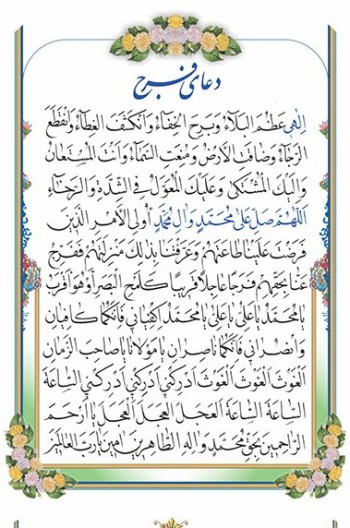 دعای فرج
اِلهي عَظُمَ الْبَلاَّءُ وَبَرِحَ الْخَفاَّءُ وَانْكَشَفَ الْغِطاَّءُ وَانْقَطَعَ
الرَّجاَّءُ وَضاقَتِ الاْرْضُ وَمُنِعَتِ السَّماَّءُ وَاَنْتَ الْمُسْتَعانُ
وَاِلَيْكَ الْمُشْتَكى وَعَلَيْكَ الْمُعَوَّلُ فِى الشِّدَّةِ وَالرَّخاَّءِ
اَللّهُمَّ صَلِّ عَلى مُحَمَّدٍ وَالِ مُحَمَّدٍ اُولِى الاْمْرِ الَّذينَ
فَرَضْتَ عَلَيْنا طاعَتَهُمْ وَعَرَّفْتَنا بِذلِكَ مَنْزِلَتَهُمْ فَفَرِّجْ
عَنا بِحَقِّهِمْ فَرَجاً عاجِلاً قَريباً كَلَمْحِ الْبَصَرِ اَوْ هُوَ اَقْرَبُ
يا مُحَمَّدُ يا عَلِىُّ يا عَلِىُّ يا مُحَمَّدُ اِكْفِيانى فَاِنَّكُما كافِيانِ
وَانْصُرانى فَاِنَّكُما ناصِرانِ يا مَوْلانا يا صاحِبَ الزَّمانِ
الْغَوْثَ الْغَوْثَ الْغَوْثَ اَدْرِكْنى اَدْرِكْنى اَدْرِكْنى السّاعَةَ
السّاعَةَ السّاعَةَ الْعَجَلَ الْعَجَلَ الْعَجَلَ يا اَرْحَمَ
الرّاحِمينَ بِحَقِّ مُحَمَّدٍ وَالِهِ الطّاهِرينَ امين يا رَبَّ العالَمين